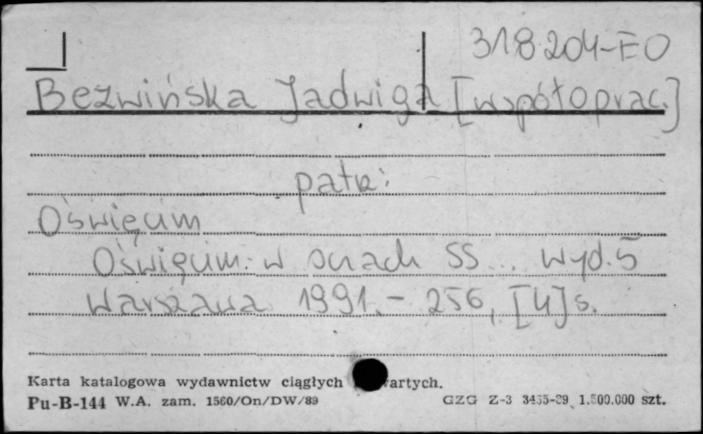 318.204-EO
Bezwińska Jadwiga [współoprac.]
patrz:
Oświęcim
Oświęcim: w oczach SS ... wyd. 5
Warszawa 1991. - 256, [4] s.
Karta katalogowa wydawnictw ciągłych artych.
Pu-B-144 W.A. zam. 1560/On/DW/89 GZG Z-3 1.500.000 szt.